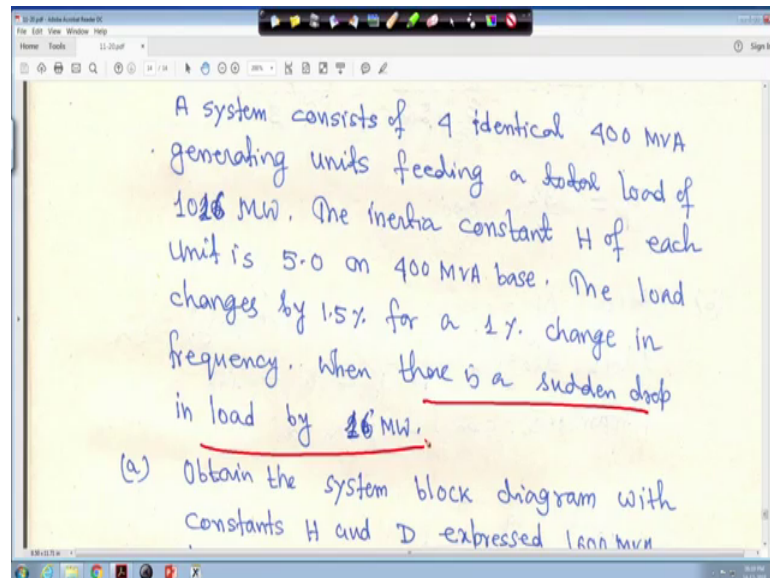 11-20.pdf - Adobe Acrobat Reader DC
File Edit View Window Help
Home Tools 11-20.pdf × Sign In
14 / 14 200%
A system consists of 4 identical 400 MVA
generating units feeding a total load of
1016 MW. The inertia constant H of each
unit is 5.0 on 400 MVA base. The load
changes by 1.5% for a 1% change in
frequency. When there is a sudden drop
in load by 16 MW.
(a) Obtain the system block diagram with
constants H and D expressed 1600 MVA